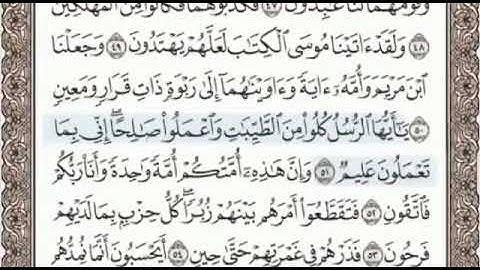 وَقَوْمُهُمَا لَنَا عَٰبِدُونَ ٤٧ فَكَذَّبُوهُمَا فَكَانُوا۟ مِنَ ٱلْمُهْلَكِينَ
٤٨ وَلَقَدْ ءَاتَيْنَا مُوسَى ٱلْكِتَٰبَ لَعَلَّهُمْ يَهْتَدُونَ ٤٩ وَجَعَلْنَا
ٱبْنَ مَرْيَمَ وَأُمَّهُۥٓ ءَايَةً وَءَاوَيْنَٰهُمَآ إِلَىٰ رَبْوَةٍ ذَاتِ قَرَارٍ وَمَعِينٍ
٥٠ يَٰٓأَيُّهَا ٱلرُّسُلُ كُلُوا۟ مِنَ ٱلطَّيِّبَٰتِ وَٱعْمَلُوا۟ صَٰلِحًا ۖ إِنِّى بِمَا
تَعْمَلُونَ عَلِيمٌ ٥١ وَإِنَّ هَٰذِهِۦٓ أُمَّتُكُمْ أُمَّةً وَٰحِدَةً وَأَنَا۠ رَبُّكُمْ
فَٱتَّقُونِ ٥٢ فَتَقَطَّعُوٓا۟ أَمْرَهُم بَيْنَهُمْ زُبُرًا ۖ كُلُّ حِزْبٍۭ بِمَا لَدَيْهِمْ
فَرِحُونَ ٥٣ فَذَرْهُمْ فِى غَمْرَتِهِمْ حَتَّىٰ حِينٍ ٥٤ أَيَحْسَبُونَ أَنَّمَا نُمِدُّهُم